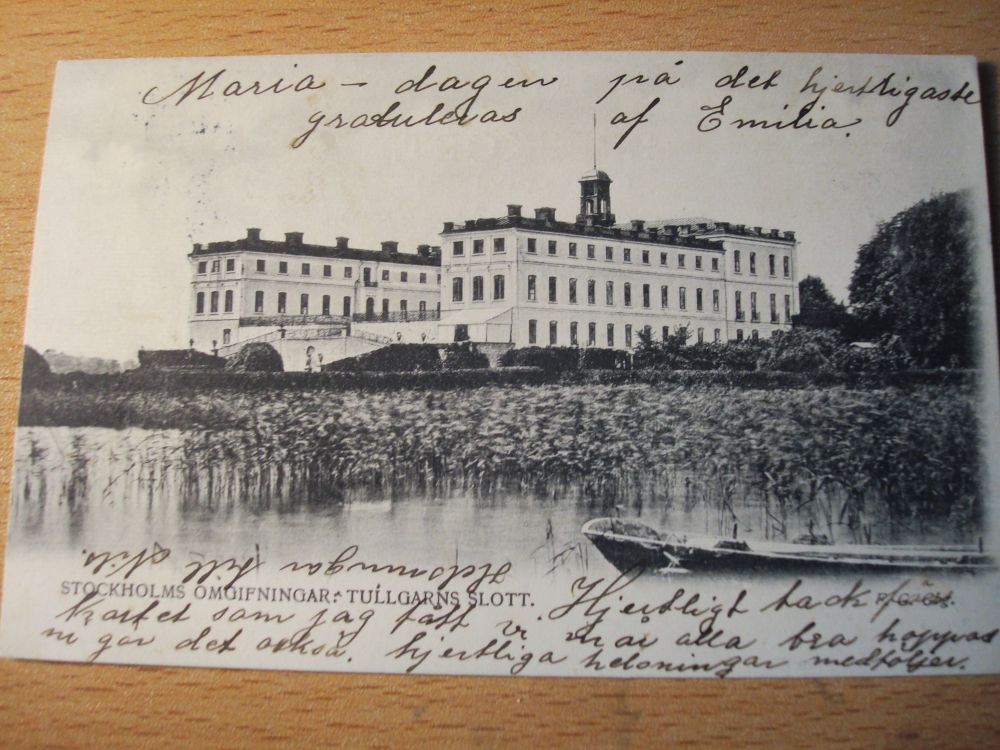 Maria – dagen på det hjertligaste
gratuleras af Emilia.
Helsningar till Nils.
STOCKHOLMS OMGIFNINGAR: TULLGARNS SLOTT.
Hjertligt tack för
kortet som jag fått vi må alla bra hoppas
ni gör det också. hjertliga helsningar medföljer.